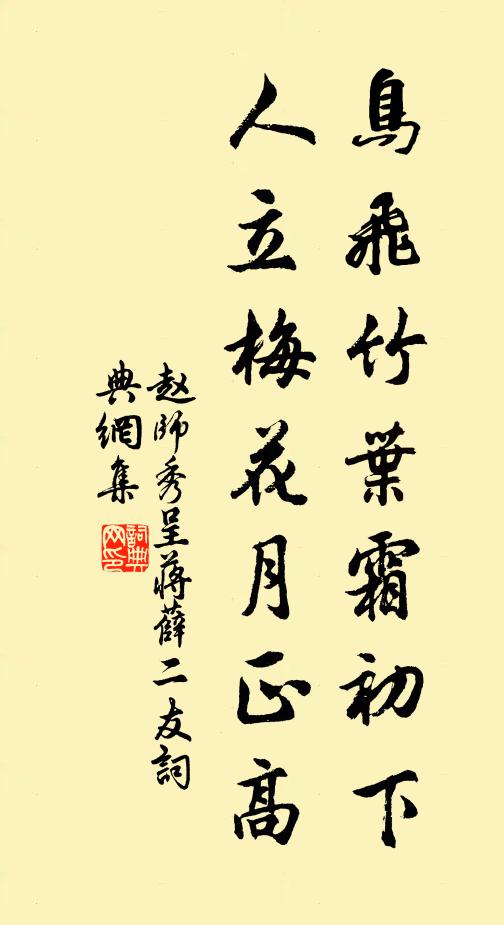 鳥飛竹葉霜初下
人立梅花月正高
赵師秀呈蔣薛二友詞
典網集
詞典
网印